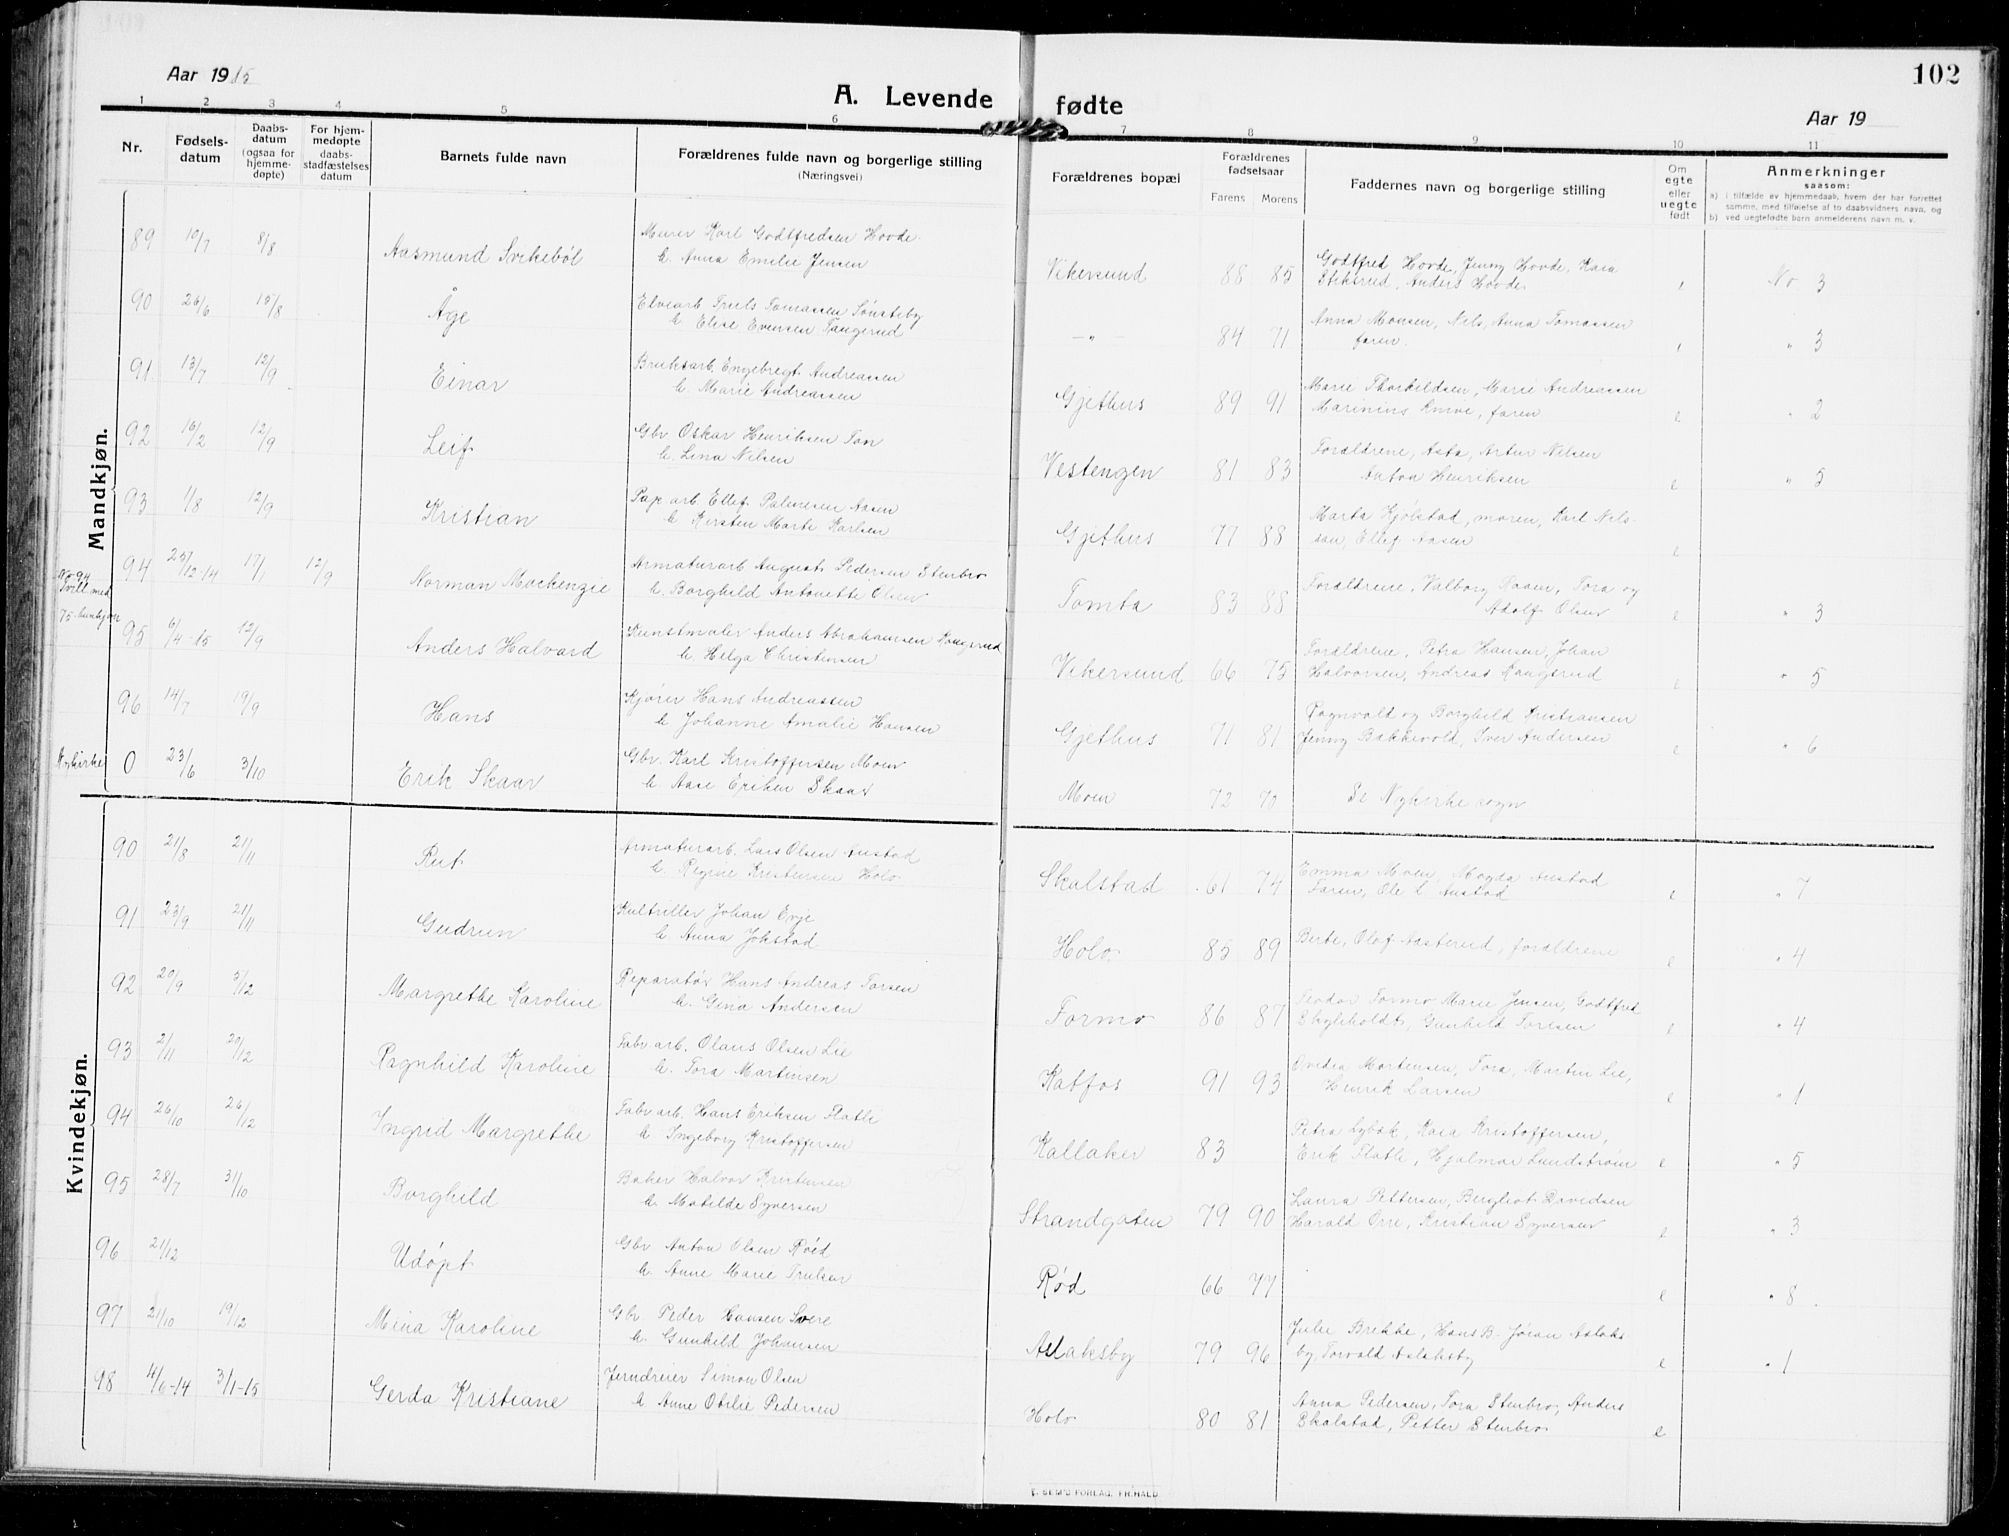 102
Aar 1915
A. Levende fødte
Aar 19
1 2 3 4 5 6 7 8 9 10 11
Nr.
Fødsels-
datum
Daabs-
datum
(ogsaa for
hjemme-
døpte)
For hjem-
medøpte
daabs-
stadfæstelses
datum
Barnets fulde navn
Forældrenes fulde navn og borgerlige stilling
(Næringsvei)
Forældrenes bopæl
Forældrenes
fødselsaar
Farens Morens
Faddernes navn og borgerlige stilling
Om
egte
eller
uegte
født
Anmerkninger
saasom:
a) i tilfælde av hjemmedaab, hvem der har forrettet
samme, med tilføielse af to daabsvidners navn, og
b) ved uegtefødte barn anmelderens navn m. v.
Mandkjøn.
89 19/7 8/8 Aasmund Svikebøl Murer Karl Godtfredsen Hovde Vikersund 88 85 Godtfred Hovde, Jenny Hovde, Kaia No 3
h. Anna Emilie Jensen Stiksrud, Anders Hovde
90 26/6 15/8 Åge Elvearb Truls Tomassen Sønsteby -"- 84 71 Anna Monsen, Nils, Anna Tomassen " 3
h. Elise Evensen Tangerud faren.
91 13/7 12/9 Einar Bruksarb. Engebregt Andreassen Gjethus 89 91 Marie Thorkildsen, Marie Andreassen " 2
h. Marie Andreassen Marinius, faren
92 16/2 12/9 Leif Gbr Oskar Henriksen Ton Vestengen 81 83 Forældrene, Asta, Artur Nilsen e " 5
h. Lina Nilsen Anton Henriksen
93 1/8 12/9 Kristian Pap.arb. Ellef Palmesen Aasen Gjethus 77 88 Marta Kjølstad, moren, Karl Nils- e
h. Kirsten Marte Karlsen sen, Ellef Aasen
No 94
Tvill. med
75. kvinkjøn
94 25/12-14 17/1 12/9 Norman Mackenzie Armaturarb August Pedersen Stenbro Tomta 83 88 Forældrene, Valborg Paasen, Tora og e " 3
h. Borghild Antonette Olsen Adolf Olsen
95 6/4-15 12/9 Anders Halvard Kunstmaler Anders Abrahamsen Kongsrud Vikersund 66 75 Forældrene, Petra Hansen, Johan e " 5
h. Helga Christensen Halvorsen, Andreas Kongsrud
96 14/7 19/9 Hans Kjører Hans Andreassen Gjethus 71 81 Ragnvald og Borghild Kristiansen e " 6
h. Johanne Amalie Hansen Jenny Bakkevold, Iver Andersen
Nykirke 0 23/6 3/10 Erik Skaar Gbr. Karl Kristoffersen Moen Moen 72 70 Se Nykirke sogn
h. Aase Eriksen Skaar
Kvindekjøn.
90 21/8 21/11 Rut Armaturarb. Lars Olsen Austad Skalstad 61 74 Emma Moen, Magda Austad e " 7
h. Regine Kristensen Holo Faren, Ole L Austad
91 23/9 21/11 Gudrun Kultriller Johan Evje Holo 85 89 Berte, Olaf Aasterud, forældrene e " 4
h. Anna Jokstad
92 20/9 5/12 Margrethe Karoline Reparatør Hans Andreas Torsen Formo 86 87 Teodor Formo Marie Jensen, Godtfred e " 4
h. Gina Andersen Skyleholdt, Gunhild Torsen
93 2/11 20/12 Ragnhild Karoline Fabr arb. Olaus Olsen Lie Katfos 91 93 Ovedia Mortensen, Tora, Martin Lie, e " 1
h. Tora Martinsen Henrik Larsen
94 26/10 26/12 Ingrid Margrethe Fabr arb. Hans Eriksen Flatli Kallaker 83 Petra Lybæk, Kaia Kristoffersen,
h. Ingeborg Kristoffersen Erik Flatli, Hjalmar Lundstrøm e " 5
95 28/7 31/10 Borghild Baker Halvor Kristensen Strandgaten 79 90 Laura Pettersen, Bergliot Davidsen
h. Matilde Syversen Harald Orre, Kristian Syversen e " 3
96 21/12 Udøpt Gbr Anton Olsen Røed Rød 66 77 e " 8
h. Anne Marie Trulsen
97 21/10 19/12 Mina Karoline Gbr. Peder Hansen Svere Aslaksby 79 96 Julie Brekke, Hans B. Jøran Aslaks
h. Gunhild Johansen by, Torvald Aslaksby e " 1
98 4/6-14 3/1-15 Gerda Kristiane Jerndreier Simon Olsen Holo 80 81 Anna Pedersen, Tora Stenbro, Anders
h. Anne Otilie Pedersen Skalstad, Petter Stenbro e
E. SEM'S FORLAG, FR.HALD